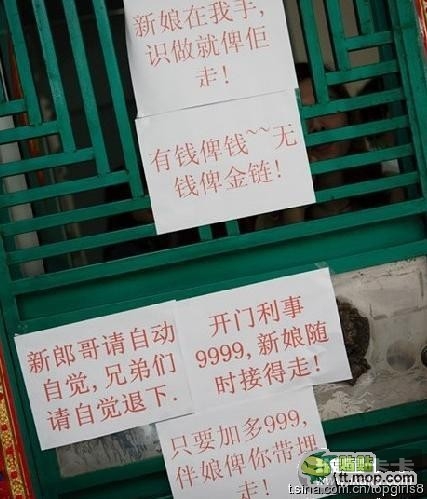 新娘在我手,
识做就俾佢
走!
有钱俾钱~~无
钱俾金链!
新郎哥请自动
自觉,兄弟们
请自觉退下.
开门利事
9999,新娘随
时接得走!
只要加多999,
伴娘俾你带埋
走!
贴贴
tt.mop.com
tsina.com.cn/topgirls8